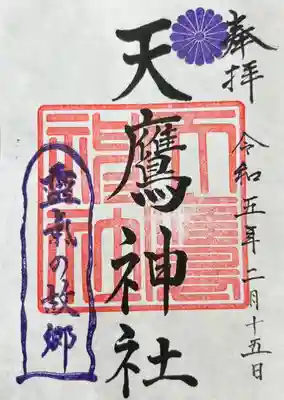 奉拝
令和五年二月十五日
天鷹神社
天鷹神社
霊気の故郷